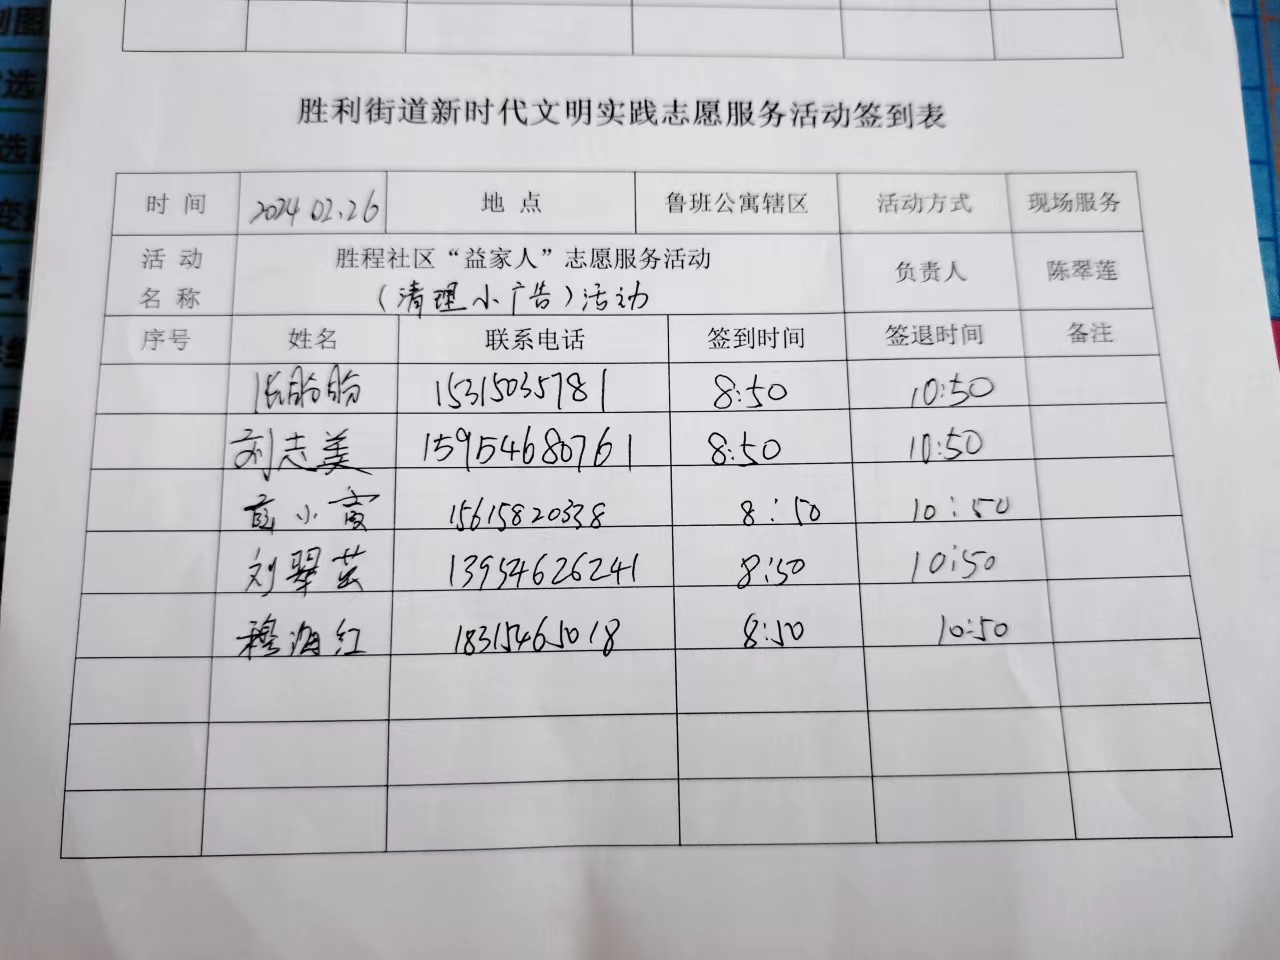 胜利街道新时代文明实践志愿服务活动签到表
时 间 2024 02.26 地 点 鲁班公寓辖区 活动方式 现场服务
活 动 名 称 胜程社区“益家人”志愿服务活动 负责人 陈翠莲
（清理小广告）活动
序号 姓名 联系电话 签到时间 签退时间 备注
张盼盼 15315035781 8:50 10:50
刘志美 15954680761 8:50 10:50
小 15615820338 8:50 10:50
刘翠芸 13954626241 8:50 10:50
穆海红 18315465018 8:50 10:50